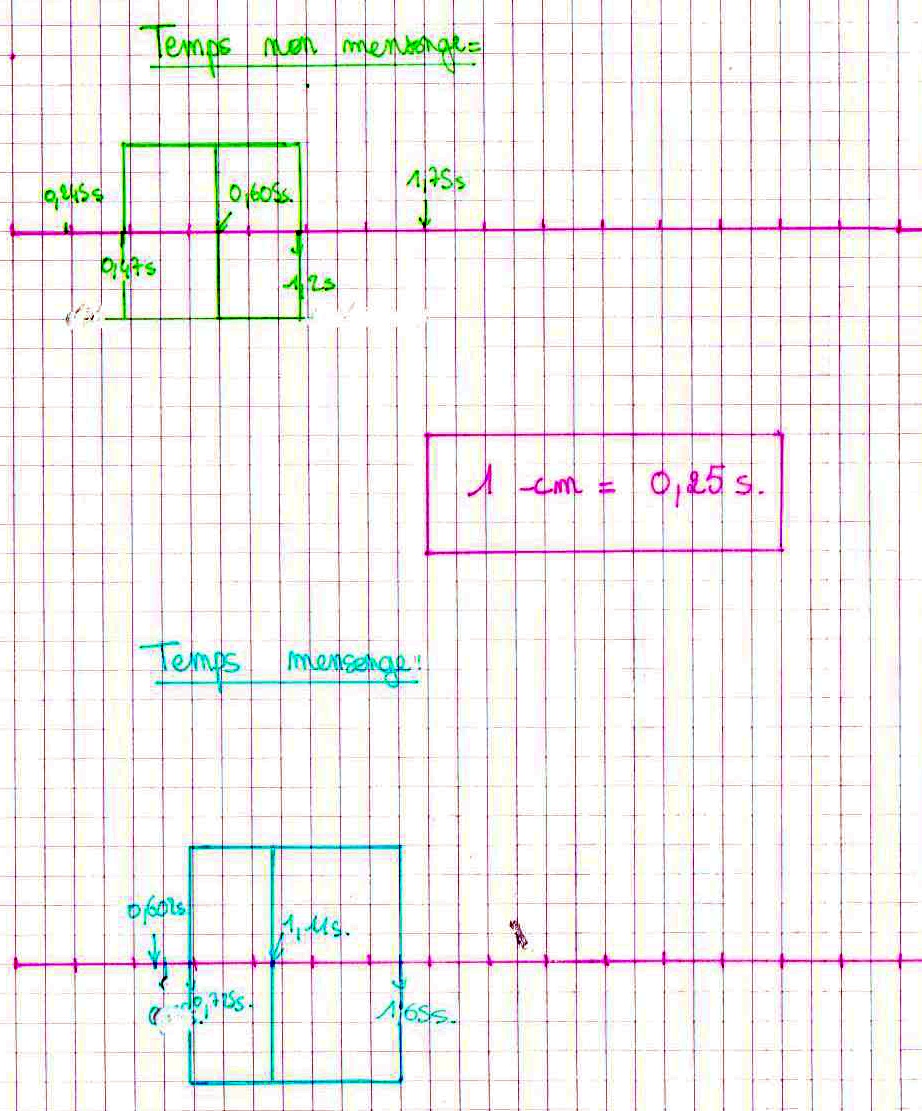 Temps non mensonge=
0,245s
0,605s.
1,75s
0,47s
1,2s
1 cm = 0,25 s.
Temps mensonge:
0,602s
1,11s.
0,725s.
1,65s.